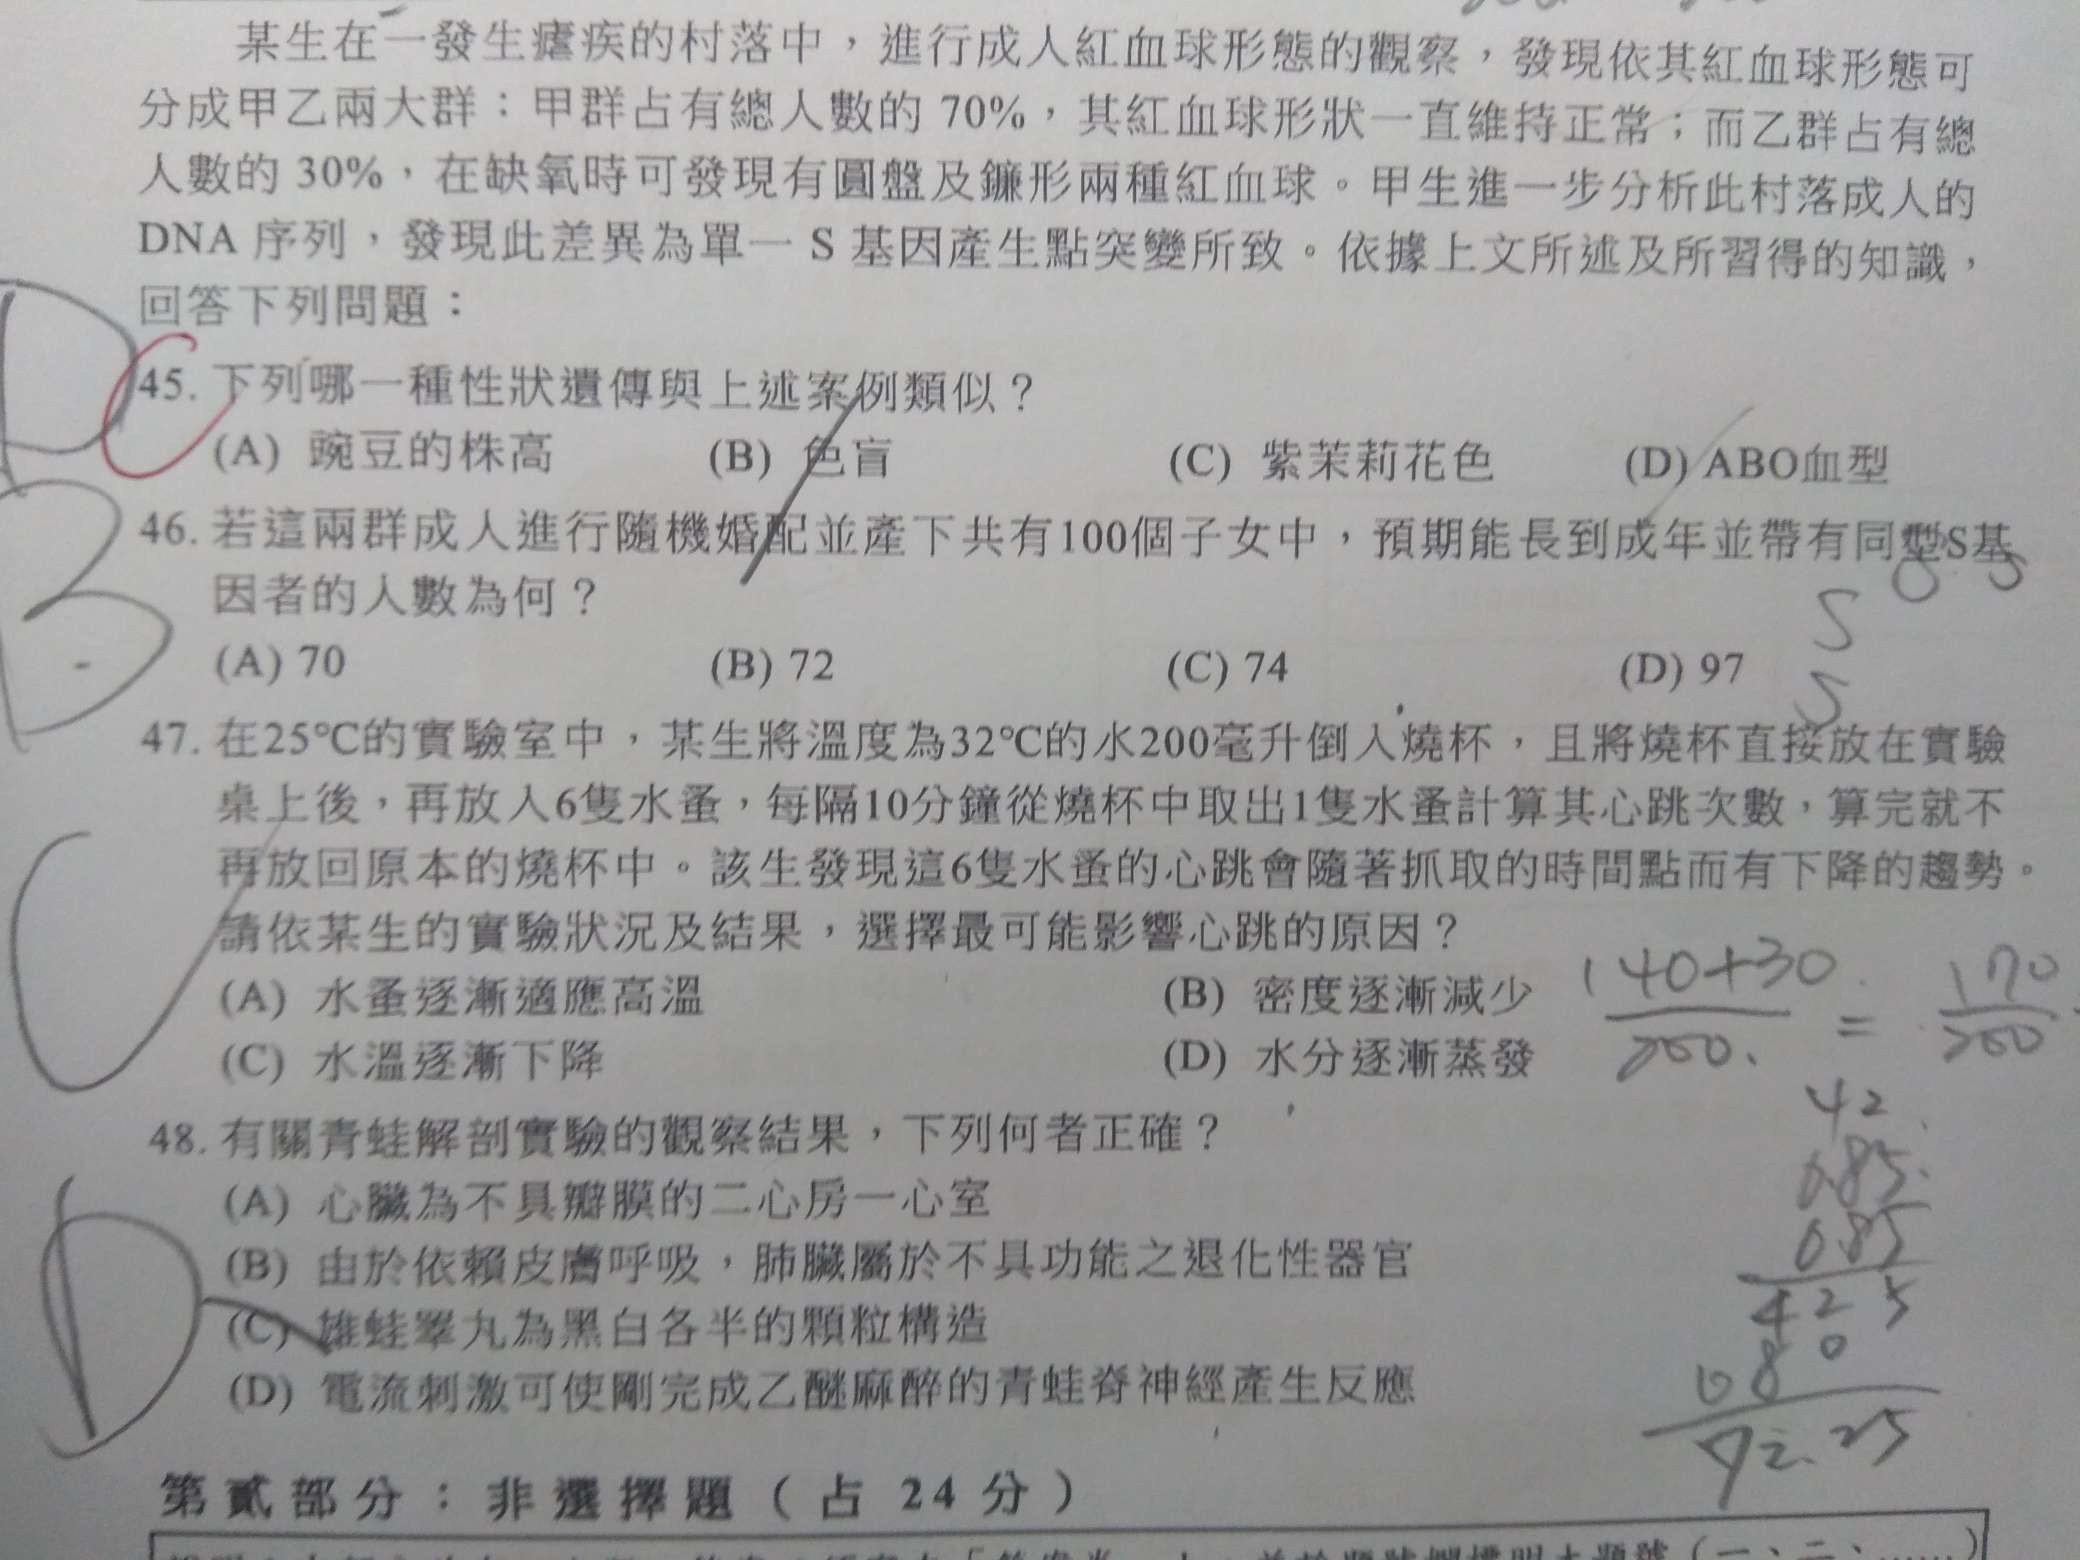 某生在一發生瘧疾的村落中，進行成人紅血球形態的觀察，發現依其紅血球形態可
分成甲乙兩大群：甲群占有總人數的 70%，其紅血球形狀一直維持正常；而乙群占有總
人數的 30%，在缺氧時可發現有圓盤及鐮形兩種紅血球。甲生進一步分析此村落成人的
DNA 序列，發現此差異為單一 S 基因產生點突變所致。依據上文所述及所習得的知識，
回答下列問題：
C
45. 下列哪一種性狀遺傳與上述案例類似？
(A) 豌豆的株高 (B) 色盲 (C) 紫茉莉花色 (D) ABO血型
B
46. 若這兩群成人進行隨機婚配並產下共有100個子女中，預期能長到成年並帶有同型S基
因者的人數為何？
(A) 70 (B) 72 (C) 74 (D) 97
S
S
47. 在25℃的實驗室中，某生將溫度為32℃的水200毫升倒入燒杯，且將燒杯直接放在實驗
桌上後，再放入6隻水蚤，每隔10分鐘從燒杯中取出1隻水蚤計算其心跳次數，算完就不
再放回原本的燒杯中。該生發現這6隻水蚤的心跳會隨著抓取的時間點而有下降的趨勢。
請依某生的實驗狀況及結果，選擇最可能影響心跳的原因？
C
(A) 水蚤逐漸適應高溫 (B) 密度逐漸減少
(C) 水溫逐漸下降 (D) 水分逐漸蒸發
140+30 = 170
200. 200
48. 有關青蛙解剖實驗的觀察結果，下列何者正確？
(A) 心臟為不具瓣膜的二心房一心室
(B) 由於依賴皮膚呼吸，肺臟屬於不具功能之退化性器官
(C) 雄蛙睪丸為黑白各半的顆粒構造
(D) 電流刺激可使剛完成乙醚麻醉的青蛙脊神經產生反應
D
42
0.85
0.85
425
680
72.25
第貳部分：非選擇題（占 24 分）